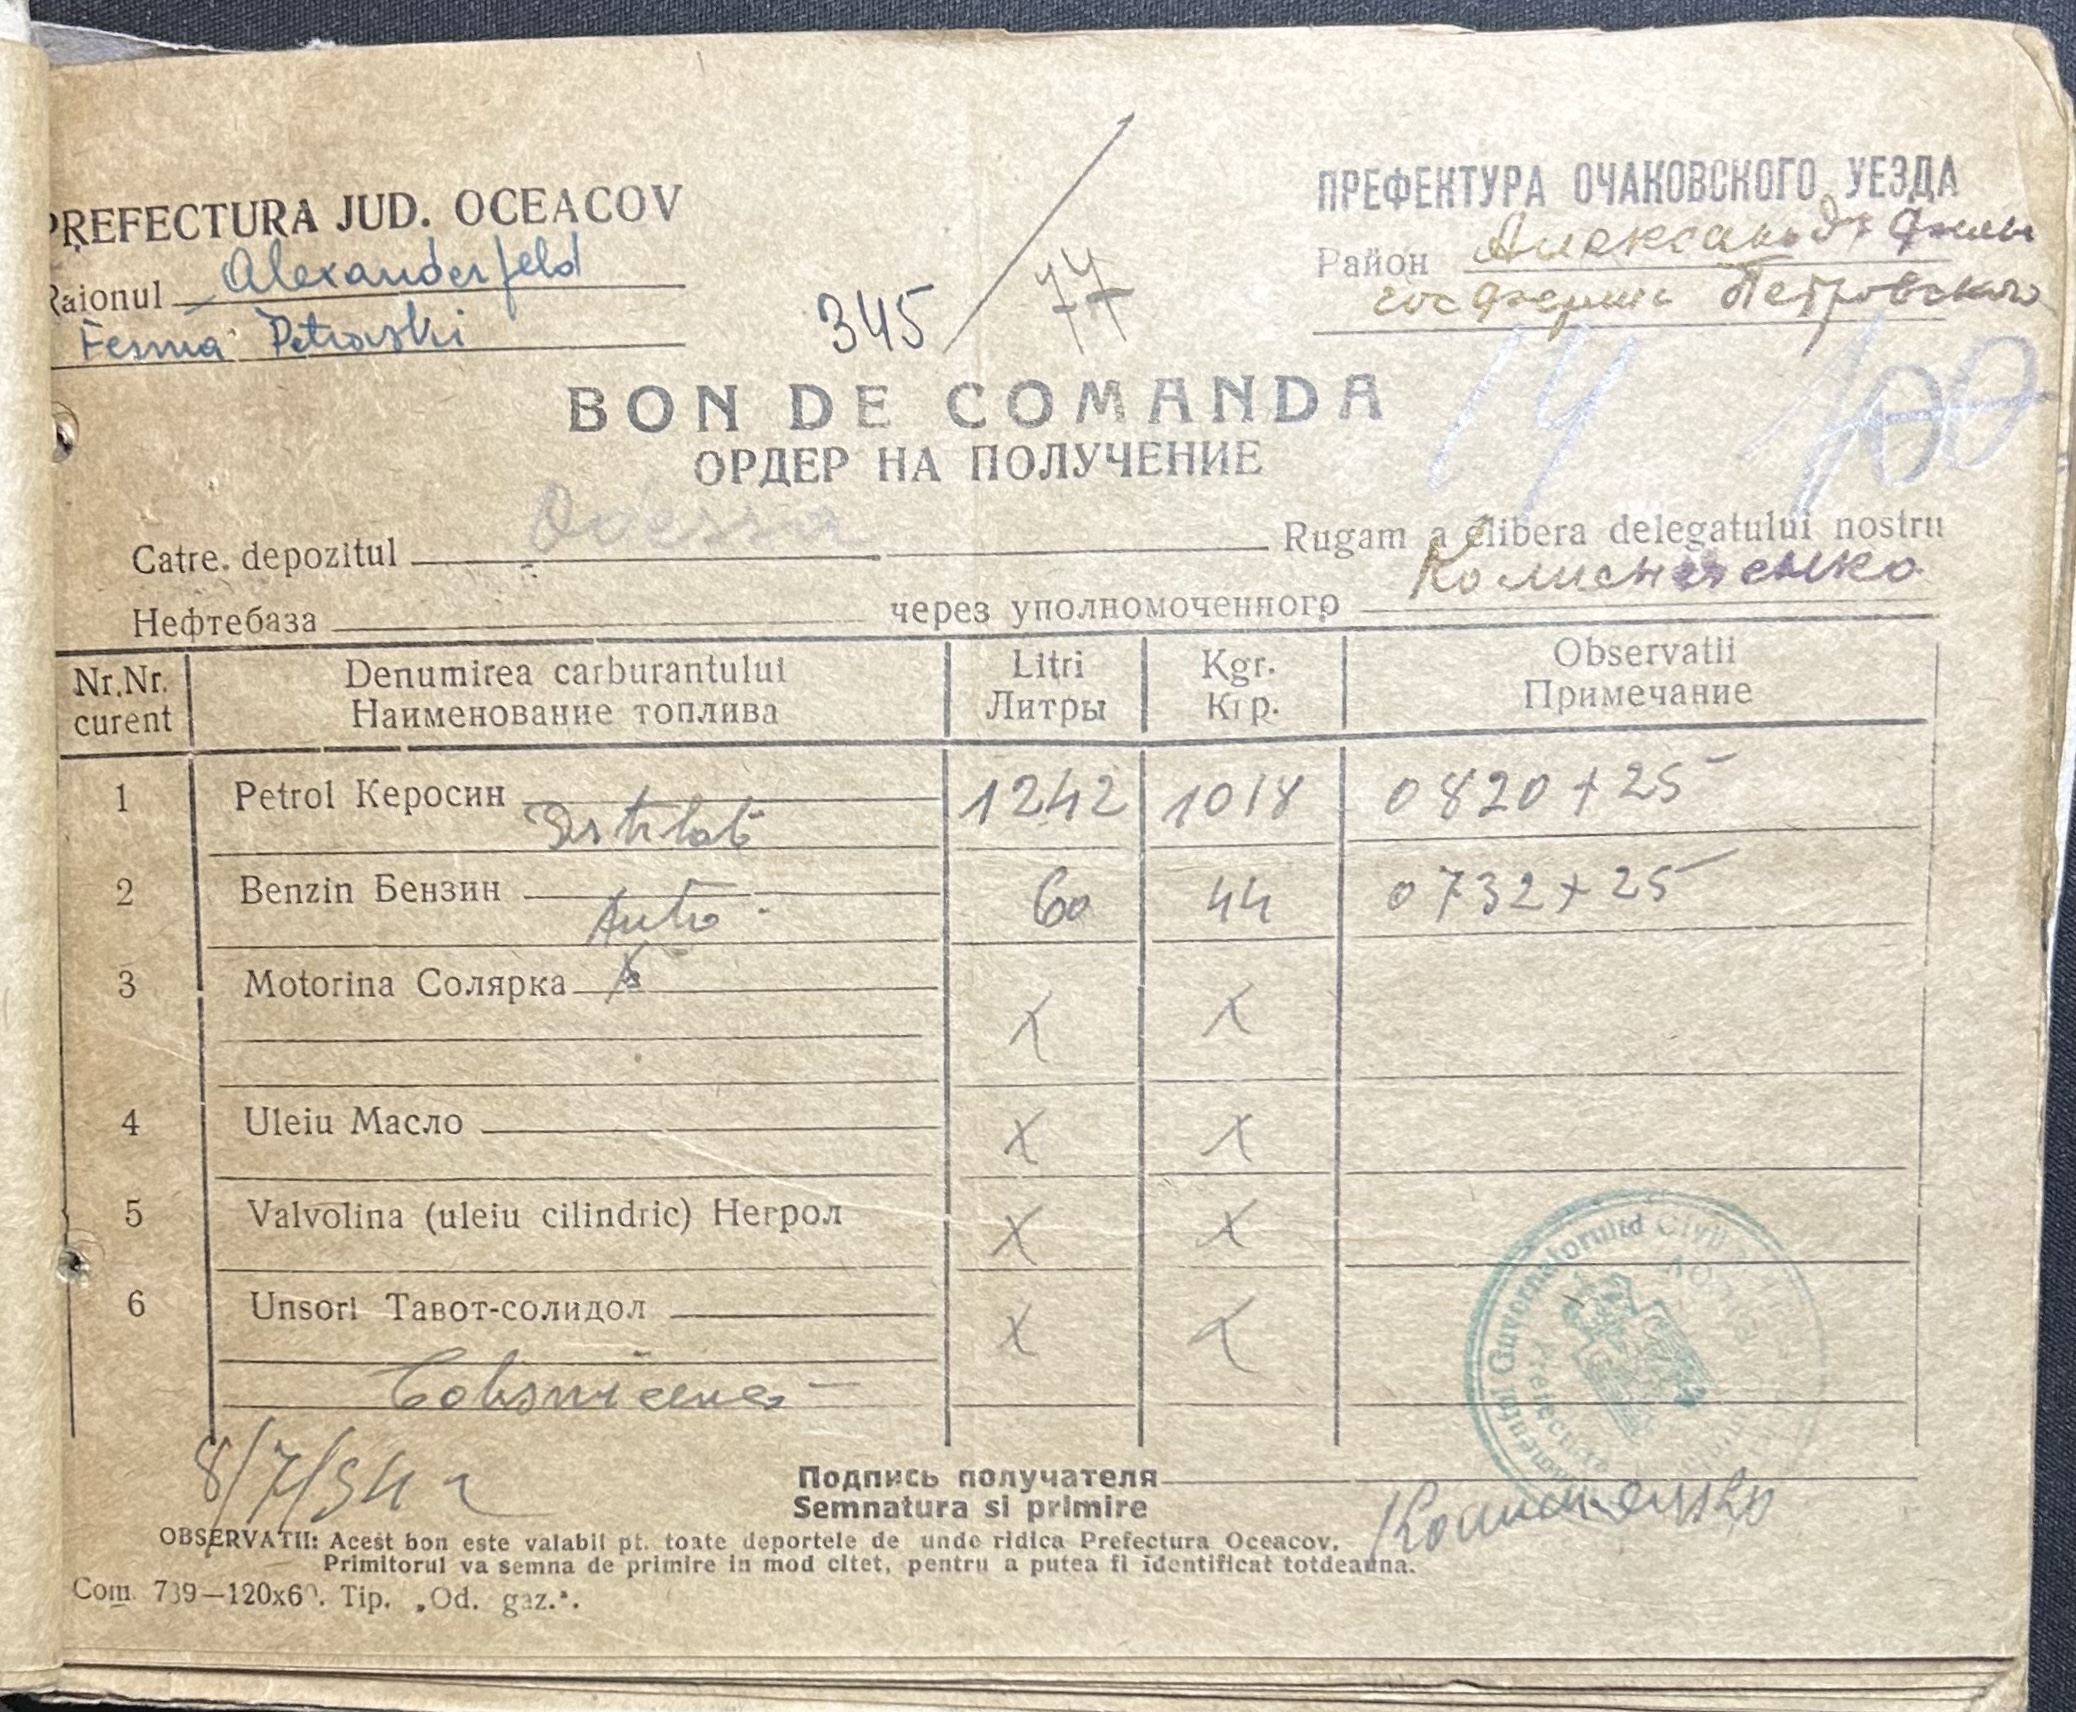 PREFECTURA JUD. OCEACOV
Raionul Alexanderfeld
Ferma Petrovski
345 / 77
ПРЕФЕКТУРА ОЧАКОВСКОГО УЕЗДА
Район Александрфельд
госферми Петровского
14 100
BON DE COMANDA
ОРДЕР НА ПОЛУЧЕНИЕ
Catre. depozitul Odessa Rugam a elibera delegatului nostru
Нефтебаза через уполномоченного
Nr.Nr. curent Denumirea carburantului Litri Kgr. Observatii
Наименование топлива Литры Кгр. Примечание
1 Petrol Керосин 1242 1018 0820 + 25
Distilat
2 Benzin Бензин 60 44 0732 + 25
Auto
3 Motorina Солярка x x
4 Uleiu Масло x x
5 Valvolina (uleiu cilindric) Негрол x x
6 Unsori Тавот-солидол x x
Подпись получателя
Semnatura si primire
OBSERVATII: Acest bon este valabil pt. toate deportele de unde ridica Prefectura Oceacov.
Primitorul va semna de primire in mod citet, pentru a putea fi identificat totdeauna.
Com. 739—120x60. Tip. „Od. gaz.".
Guvernatorului Civil